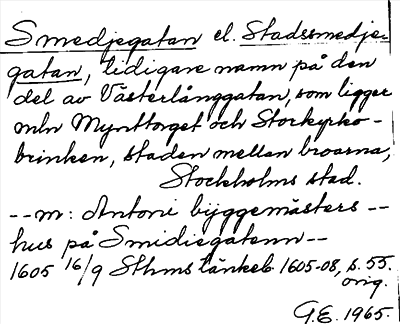 Smedjegatan el. Stadssmedje-
gatan, tidigare namn på den
del av Västerlånggatan, som ligger
mln Mynttorget och Storkyrko-
brinken, staden mellan broarna,
Stockholms stad.
-- m: Antoni byggemästers --
hus på Smidiegatenn --
1605 16/9 Sthms tänkeb. 1605-08, s. 55.
orig.
G.E. 1965.